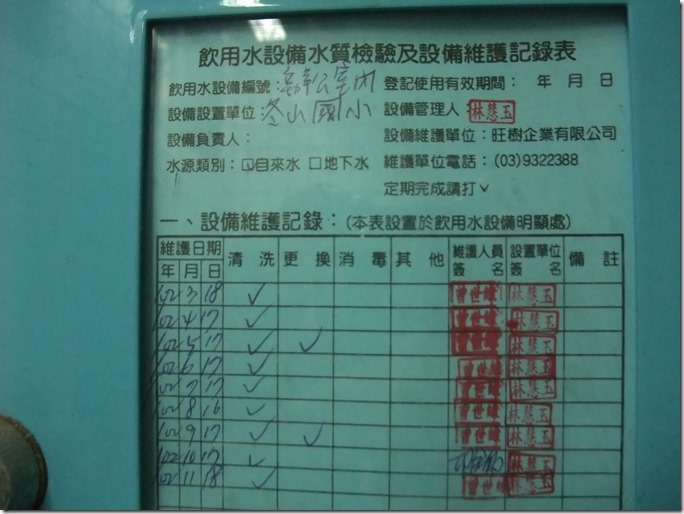 飲用水設備水質檢驗及設備維護記錄表
飲用水設備編號：辦公室內 登記使用有效期間： 年 月 日
設備設置單位：冬山國小 設備管理人：林慧玉
設備負責人： 設備維護單位：旺樹企業有限公司
水源類別：☑自來水 □地下水 維護單位電話：(03)9322388
定期完成請打✓
一、設備維護記錄：(本表設置於飲用水設備明顯處)
維護日期 清洗 更換 消毒 其他 維護人員 設置單位 備註
年 月 日 簽名 簽名
102 3 18 ✓ 曾世雄 林慧玉
102 4 17 ✓ 曾世雄 林慧玉
102 5 17 ✓ ✓ 曾世雄 林慧玉
102 6 17 ✓ 曾世雄 林慧玉
102 7 17 ✓ 曾世雄 林慧玉
102 8 16 ✓ 曾世雄 林慧玉
102 9 17 ✓ ✓ 曾世雄 林慧玉
102 10 17 ✓ 林慧玉
102 11 18 ✓ 曾世雄 林慧玉